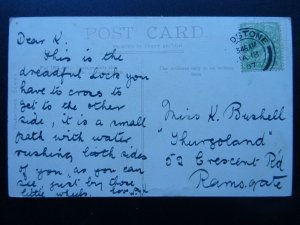 POST CARD
Dear K.
This is the
dreadful lock you
have to cross to
get to the other
side, it is a small
path with water
rushing both sides
of you, as you can
see, just by those
little wheels.
Miss K. Bushell
"Thurzoland"
52 Crescent Rd
Ramsgate